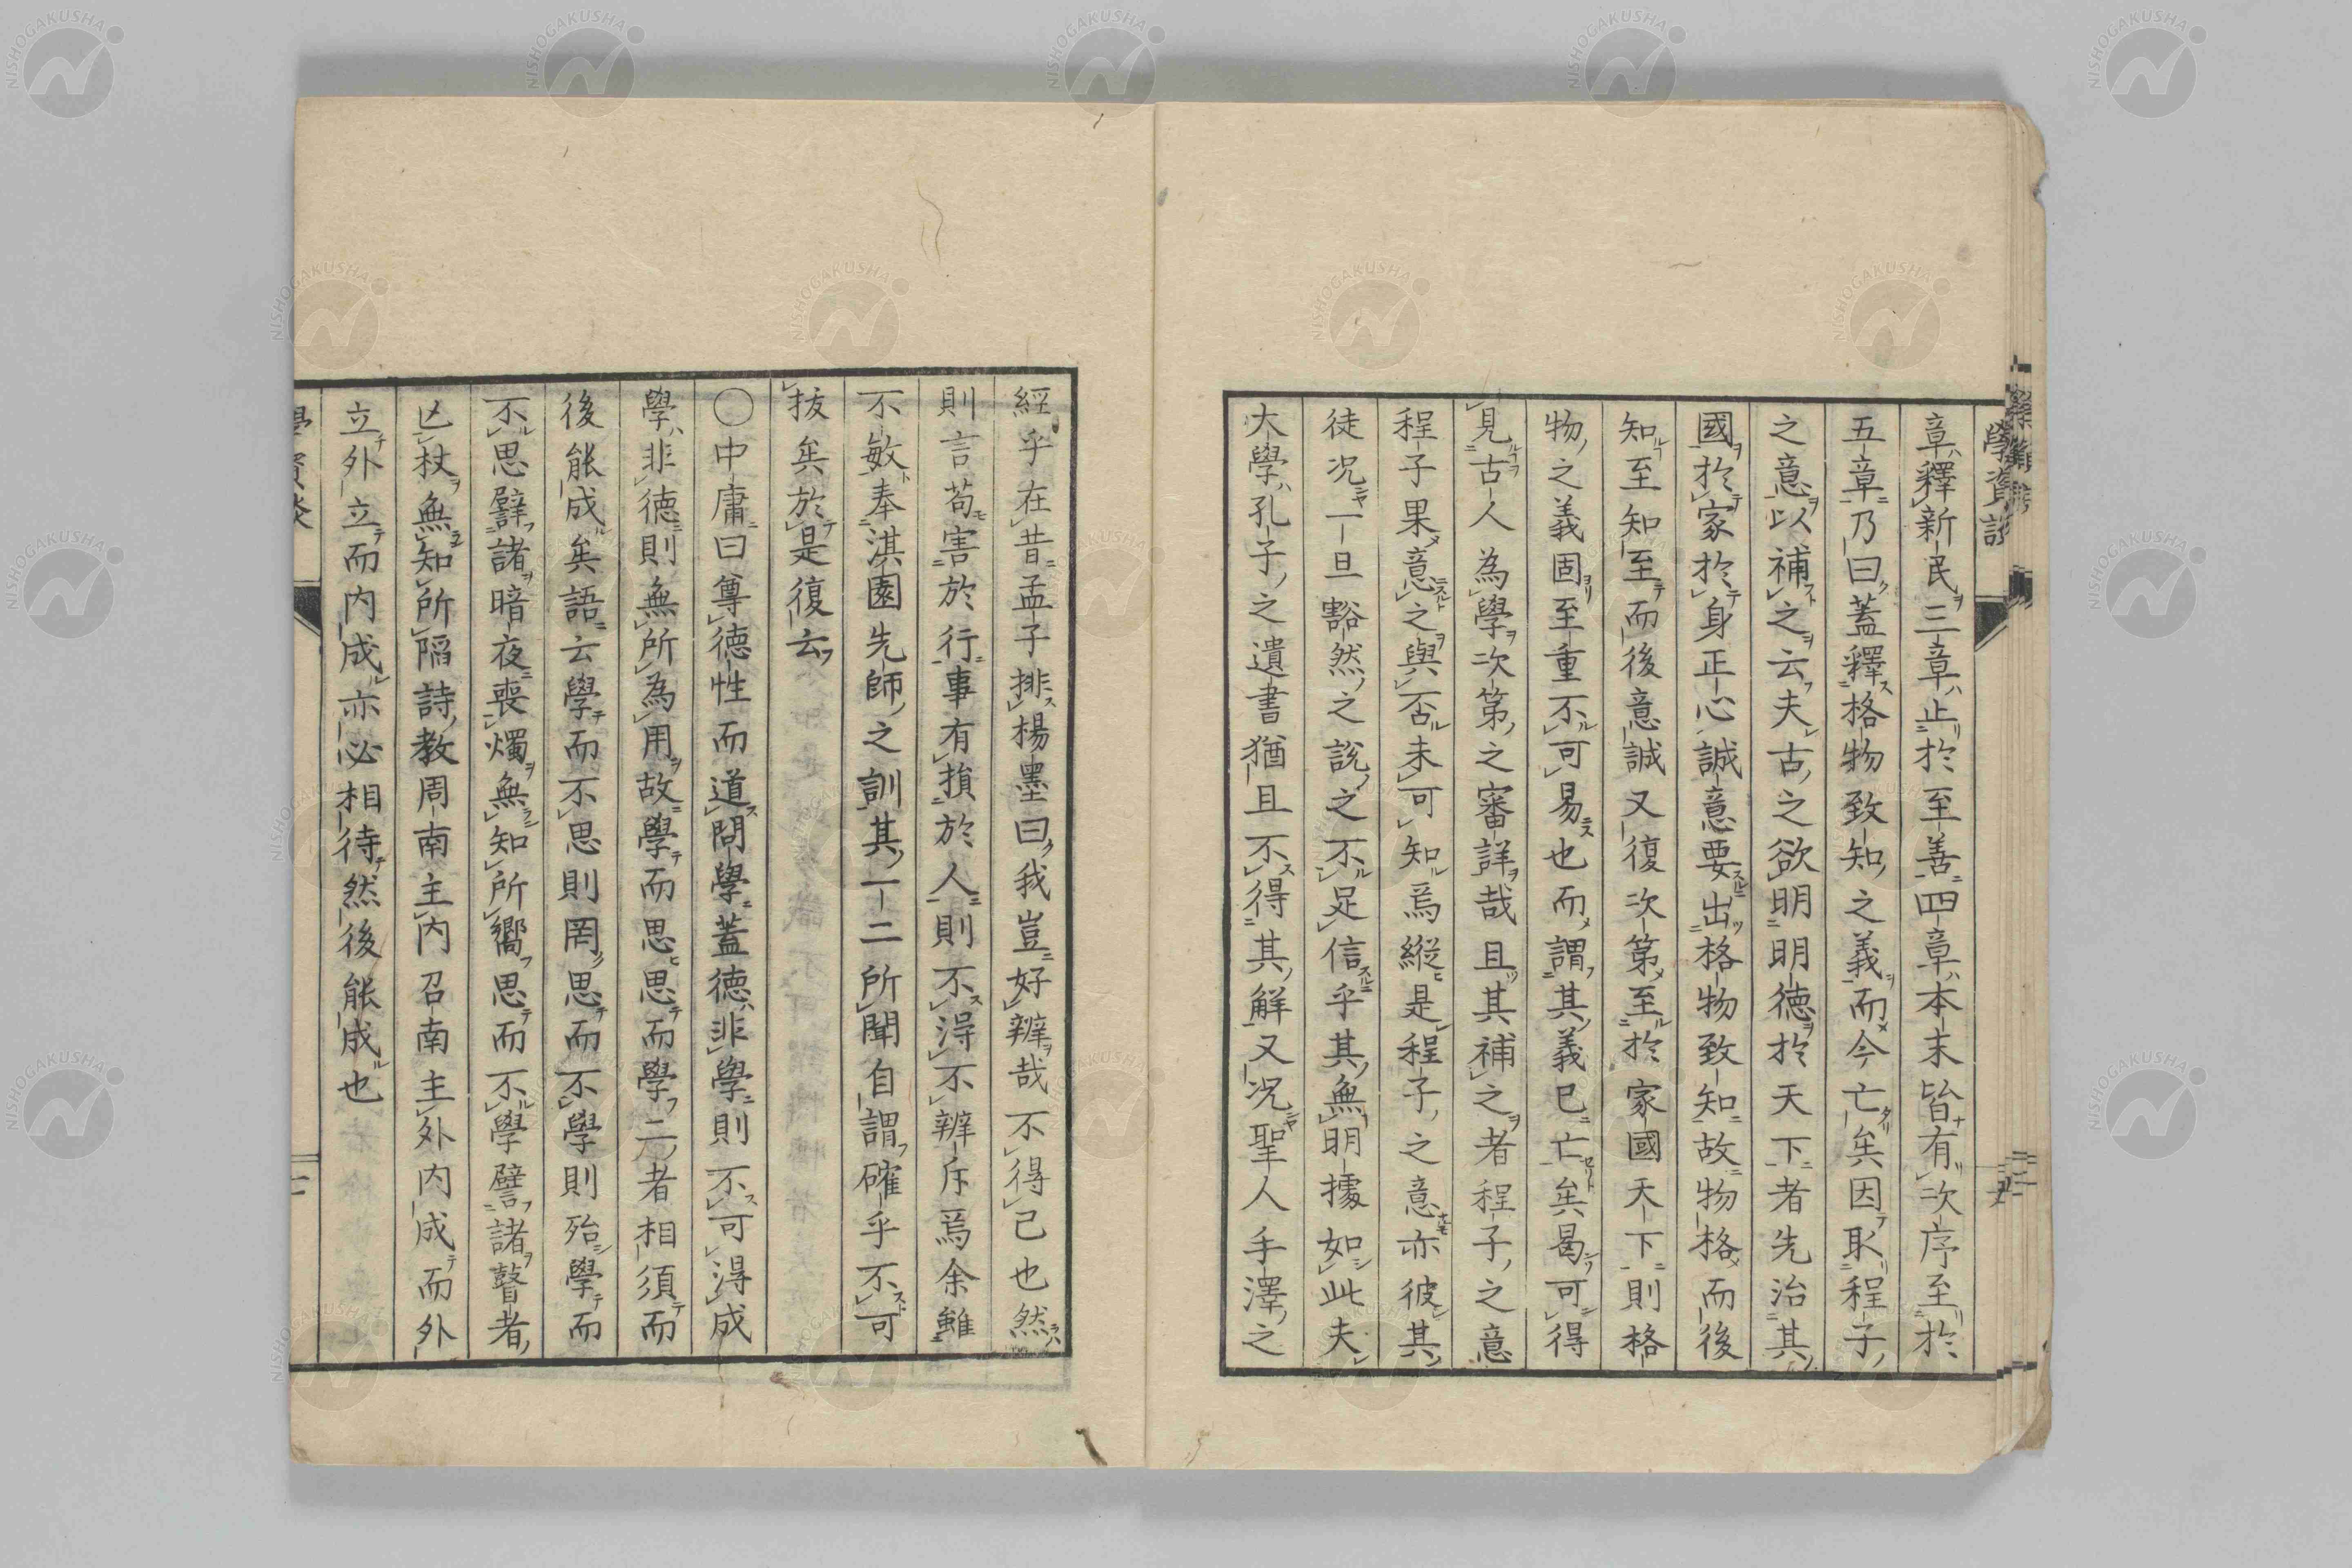 章釋新民三章止於至善四章本末皆有次序至於
五章乃曰蓋釋格物致知之義而今亡矣因取程子
之意以補之云夫古之欲明明德於天下者先治其
國於家於身正心誠意要出格物致知故物格而後
知至知至而後意誠又復次第至於家國天下則格
物之義固至重不可易也而謂其義已亡矣曷可得
見古人為學次第之審詳哉且其補之者程子之意
程子果意之與否未可知焉縱是程子之意亦彼其
徒況一旦豁然之說之不足信乎其無明據如此夫
大學孔子之遺書猶且不得其解又況聖人手澤之
經乎在昔孟子排楊墨曰我豈好辨哉不得已也然
則言苟害於行事有損於人則不得不辨斥焉余雖
不敏奉淇園先師之訓其一二所聞自謂確乎不可
拔矣於是復云
〇中庸曰尊德性而道問學蓋德非學則不可得成
學非德則無所為用故學而思思而學二者相須而
後能成矣語云學而不思則罔思而不學則殆學而
不思譬諸暗夜喪燭無知所嚮思而不學譬諸瞽者
亡杖無知所陷詩教周南主内召南主外内成而外
立外立而内成亦必相待然後能成也